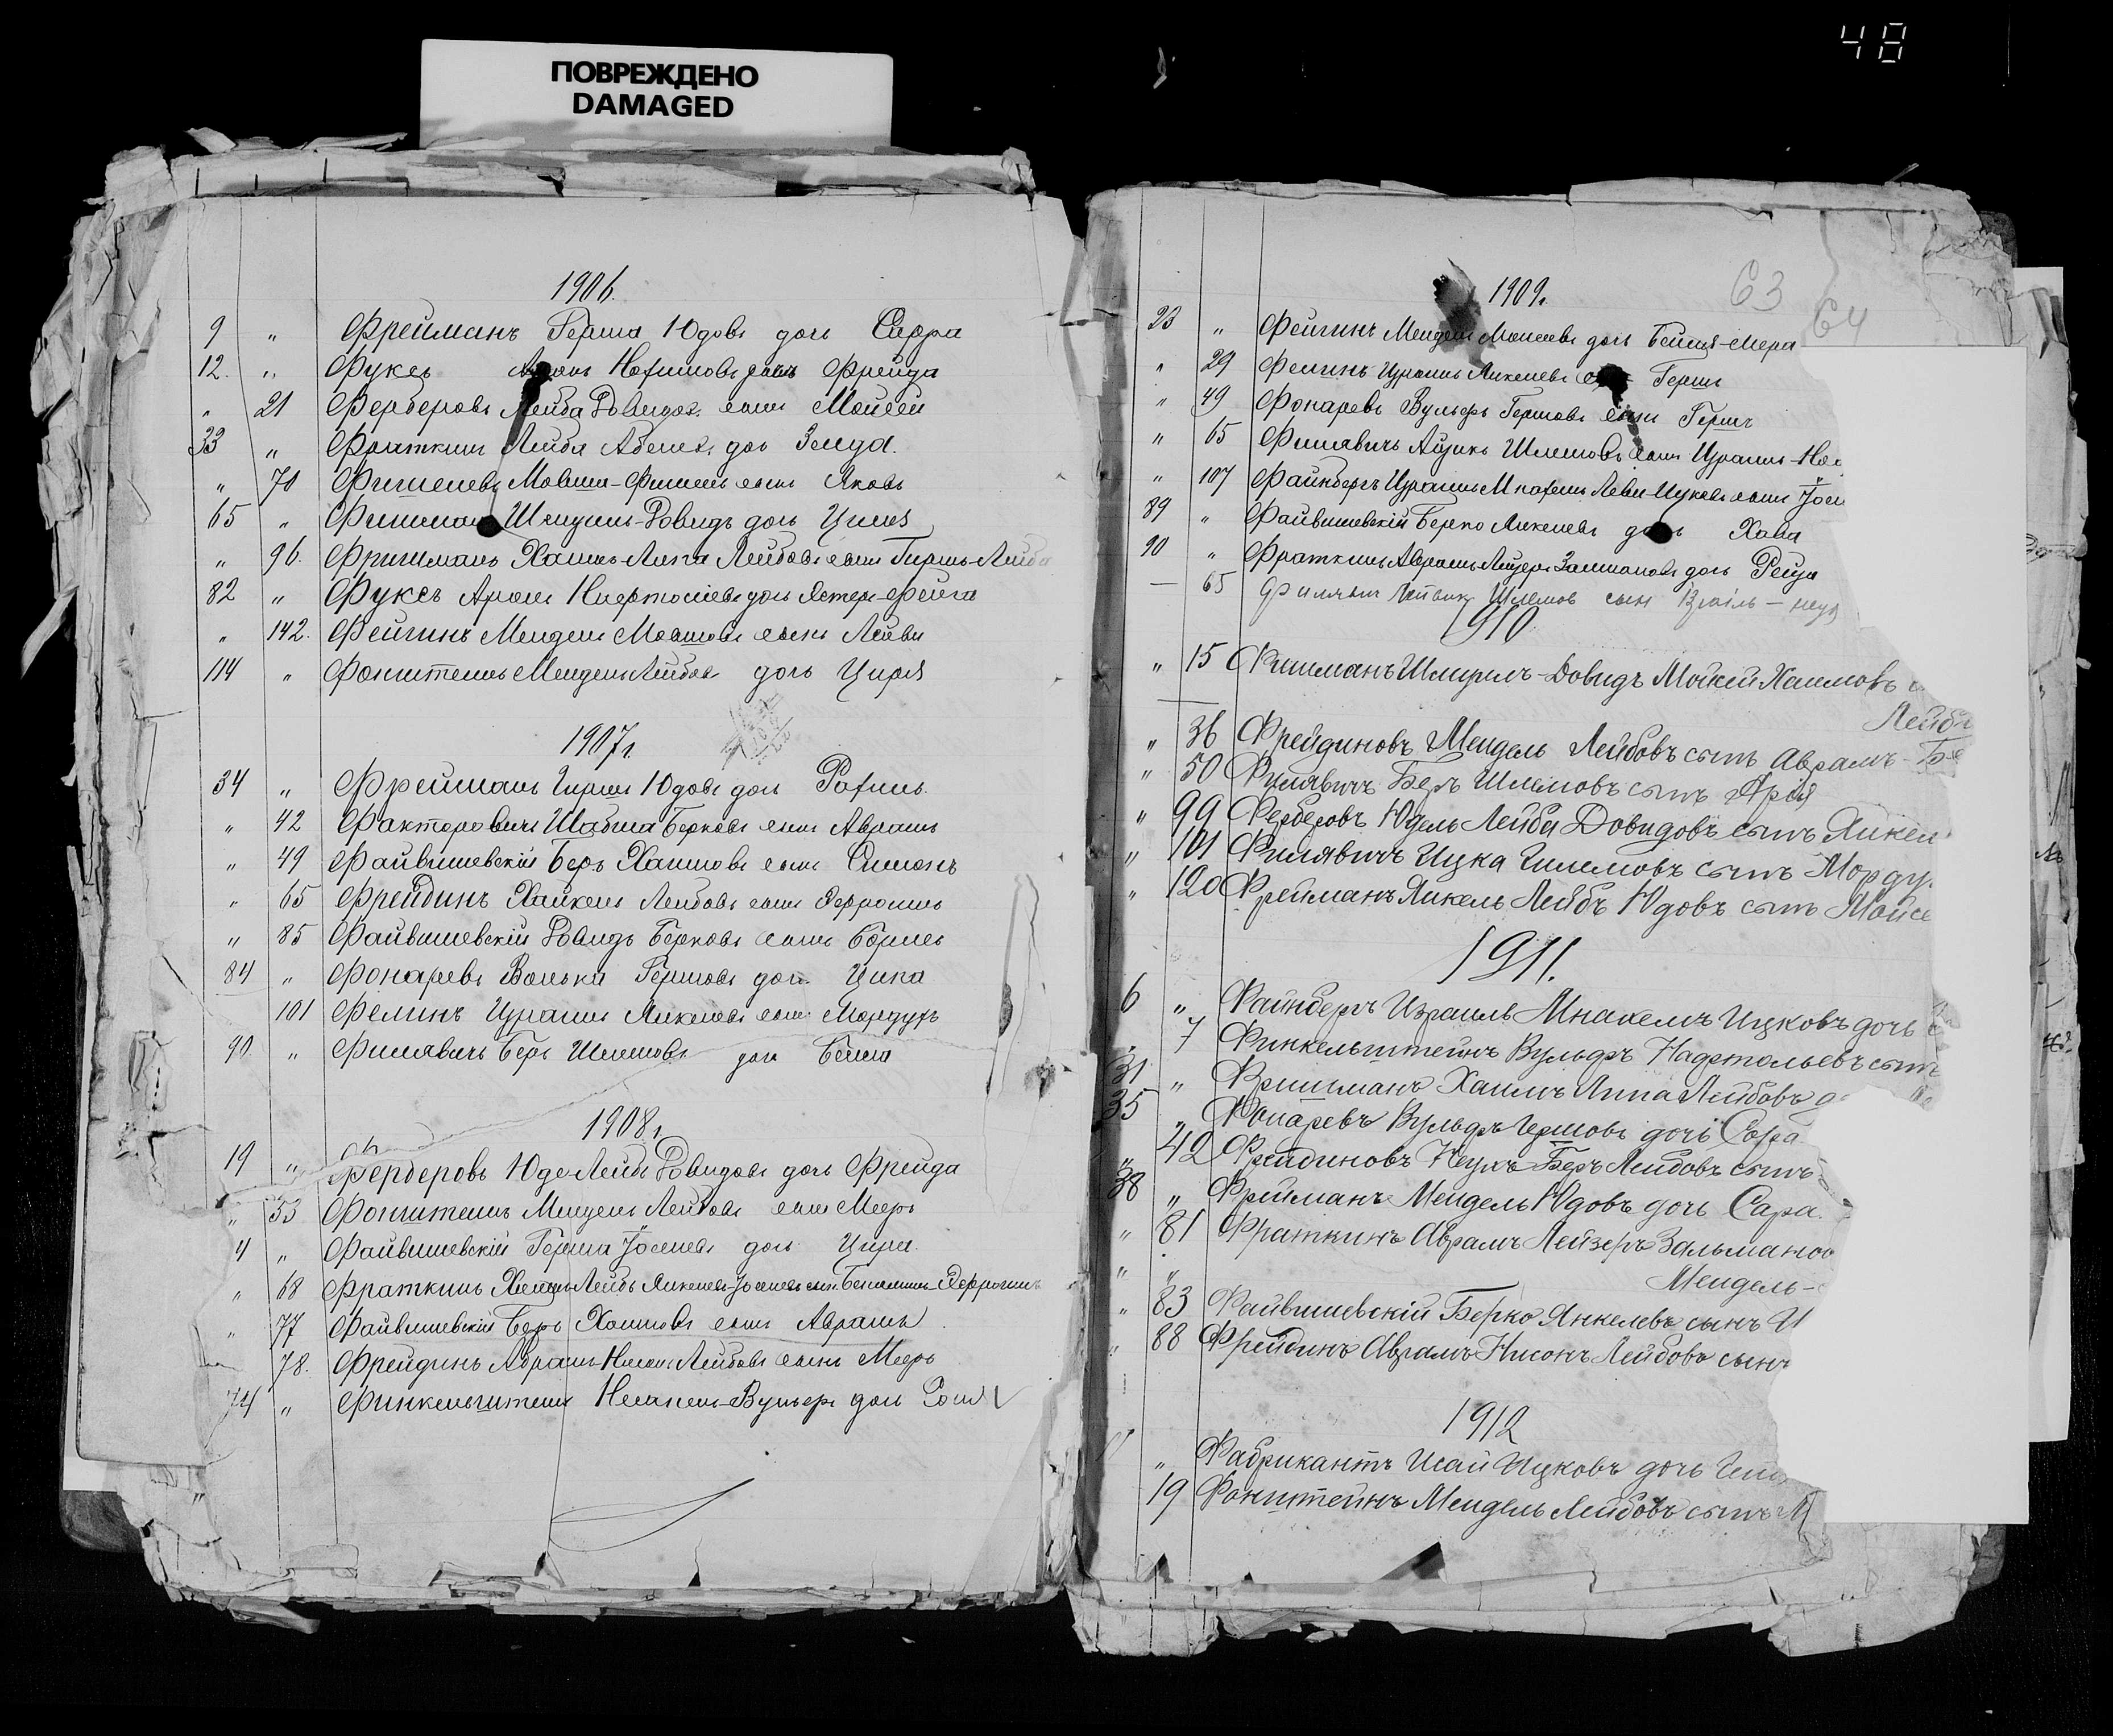 48
ПОВРЕЖДЕНО
DAMAGED
1906.
9 " Фрейманъ Герша Юдовъ дочь Сарра
12. " Фуксъ дочь Фрейда
" 21 Ферберовъ Лейба Довидов. сынъ Мойсей
33 " Фраткинъ Лейба дочь Зелда.
" 70 Фишелевъ Мовша-Фишель сынъ Яковъ
65 " Фишман Довидъ дочь
" 96. Фришманъ Хаимъ-Липа Лейбовъ сынъ Гиршъ-Лейба
82 " Фуксъ Аронъ дочь Эстеръ-Фейга
" 142. Фейгинъ Мендель Мовшовъ сынъ Лейви
114 " Фонштейнъ Мендель Лейбов дочь Цирля
1907г.
34 " Фрейманъ Гирша Юдовъ дочь Рахиль.
" 42 Факторовичъ Шабша Берковъ сынъ Авраамъ
" 49 Файвишевскій Беръ Хаимовъ сынъ Симонъ
" 65 Фрейдинъ Хайкель Лейбовъ сынъ
" 85 Файвишевскій Довидъ Берковъ сынъ Борисъ
84 " Фонаревъ Волька Гершовъ дочь
101 Фелинъ Израиль Янкелевъ сынъ Мордухъ
90 " Филявичъ Беръ Шлемовъ дочь
1908г.
19 " Ферберовъ Юде-Лейбъ Довидовъ дочь Фрейда
" 53 Фонштейнъ Мендель Лейбовъ сынъ Мееръ
4 " Файвишевскій Герша Іоселевъ дочь
" 68 Фраткинъ Лейбъ Янкелев-Іоселевъ сынъ
" 77 Файвишевскій Беръ Хаимовъ сынъ Авраамъ.
78. Фрейдинъ Авраамъ-Нисонъ Лейбовъ сынъ Мееръ
74 " Финкельштейнъ Вульфъ дочь
63
64
1909г.
23 " Фейгинъ Мендель Мовшевъ дочь
" 29 Фелинъ Израиль Янкелевъ Герша
" 49 Фонаревъ Вульфъ Гершовъ сынъ Гершъ
" 65 Филявичъ Айзикъ Шлемовъ сынъ Израиль
" 107 Файнбергъ Израиль Мнахемъ Ицковъ сынъ
89 " Файвишевскій Берко Янкелевъ дочь Хава
90 " Фраткинъ Аврамъ-Лейзеръ Залмановъ дочь Рейза
— 65 Филявич Шлемов сын
1910
" 15 Фишманъ Довидъ Мойсей Хаимовъ
Лейб
" 36 Фрейдиновъ Мендель Лейбовъ сынъ Аврамъ-
" 50 Филявичъ Беръ Шлемовъ сынъ Арія
" 99 Ферберовъ Юдель Лейба Довидовъ сынъ Янкел
" 101 Филявичъ Ицка Шлемовъ сынъ Морду
" 120 Фрейманъ Янкель Лейбъ Юдовъ сынъ Мойсе
1911.
6 " Файнбергъ Израиль Мнахемъ Ицковъ дочь
" 7 Финкельштейнъ Вульфъ Нафтольевъ сынъ
31 " Фришманъ Хаимъ Липа Лейбовъ
35 " Фонаревъ Вульфъ Гершовъ дочь Сора
" 42 Фрейдиновъ Беръ Лейбовъ сынъ
38 " Фрейманъ Мендель Юдовъ дочь Сара.
" 81 Фраткинъ Аврамъ Лейзеръ Зальманов
" " Мендель-
" 83 Файвишевскій Берко Янкелевъ сынъ И
" 88 Фрейдинъ Аврамъ Нисонъ Лейбовъ сынъ
1912
" Фабрикантъ Исай Ицковъ дочь
19 Фонштейнъ Мендель Лейбовъ сынъ М